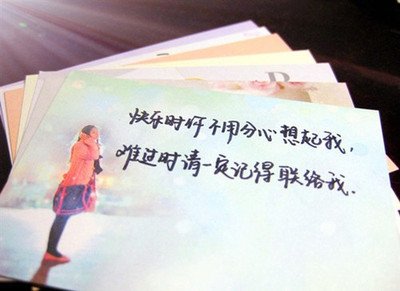 快乐时你不用分心想起我，
难过时请一定记得联络我.